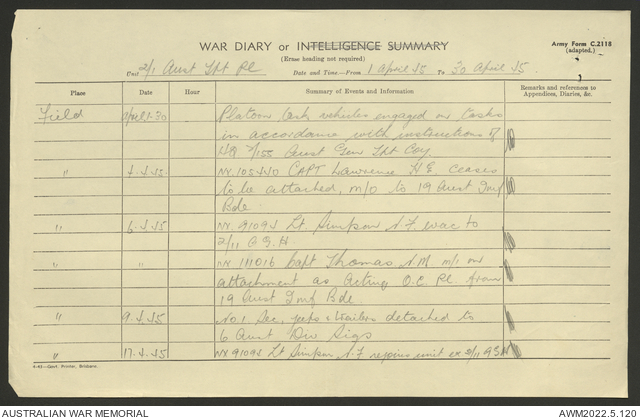 WAR DIARY or INTELLIGENCE SUMMARY
Army Form C.2118
(adapted.)
(Erase heading not required)
Unit 2/1 Aust Tpt Pl
Date and Time—From 1 April 45 To 30 April 45.
Place Date Hour Summary of Events and Information Remarks and references to
Appendices, Diaries, &c.
Field April 1-30 Platoon task vehicles engaged on tasks
in accordance with instructions of
HQ 2/155 Aust Gen Tpt Coy
" 4.4.45 NX 105440 CAPT Lawrence H E ceases
to be attached, m/o to 19 Aust Inf
Bde
" 6.4.45 NX 91094 Lt Simpson A.F. evac to
2/11 A G H
" " NX 111016 Capt Thomas A.M. m/i on
attachment as Acting O.C. Pl. from
19 Aust Inf Bde
" 9.4.45 No 1 Sec, jeeps & trailers detached to
6 Aust Div Sigs
" 17.4.45 NX 91094 Lt Simpson A F rejoins unit ex 2/11 AGH
4-43—Govt. Printer, Brisbane.
AUSTRALIAN WAR MEMORIAL
AWM2022.5.120